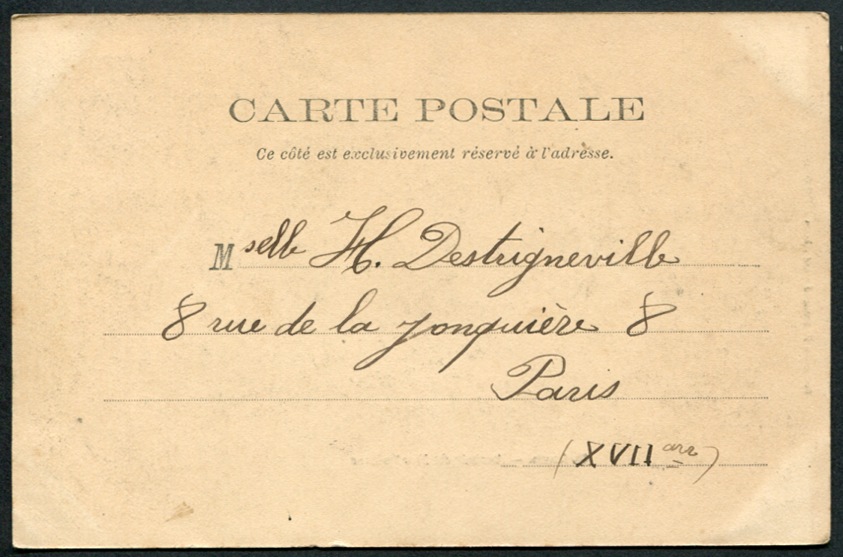 CARTE POSTALE
Ce côté est exclusivement réservé à l'adresse.
Mselle H. Destrigneville
8 rue de la Jonquière 8
Paris
(XVII arr)